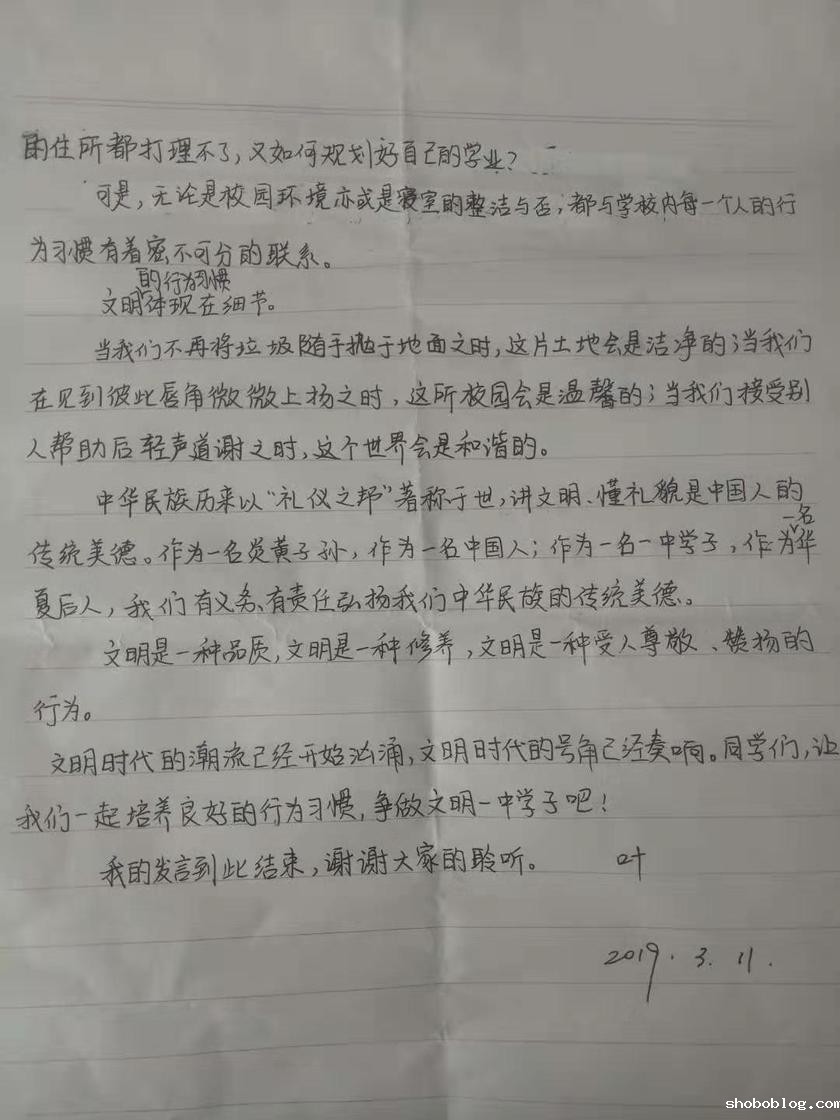 的住所都打理不了，又如何规划好自己的学业？
可是，无论是校园环境亦或是寝室的整洁与否，都与学校内每一个人的行
为习惯有着密不可分的联系。
的行为习惯
文明体现在细节。
当我们不再将垃圾随手抛于地面之时，这片土地会是洁净的；当我们
在见到彼此唇角微微上扬之时，这所校园会是温馨的；当我们接受别
人帮助后轻声道谢之时，这个世界会是和谐的。
中华民族历来以“礼仪之邦”著称于世，讲文明、懂礼貌是中国人的
一名
传统美德。作为一名炎黄子孙，作为一名中国人；作为一名一中学子，作为华
夏后人，我们有义务、有责任弘扬我们中华民族的传统美德。
文明是一种品质，文明是一种修养，文明是一种受人尊敬、赞扬的
行为。
文明时代的潮流已经开始汹涌，文明时代的号角已经奏响。同学们，让
我们一起培养良好的行为习惯，争做文明一中学子吧！
我的发言到此结束，谢谢大家的聆听。 叶
2019.3.11.
shoboblog.com